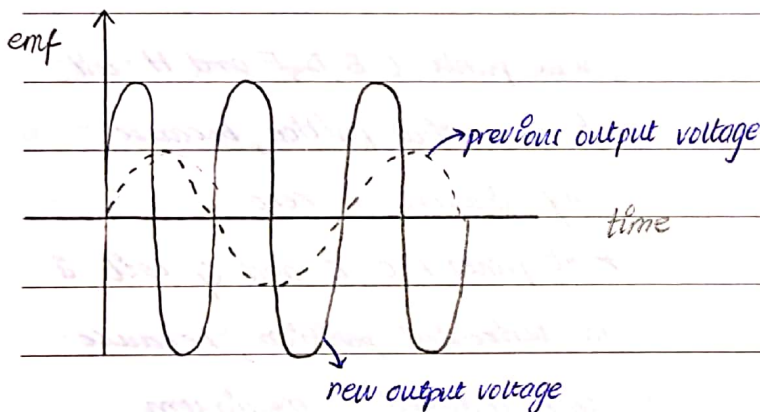 emf
previous output voltage
time
new output voltage